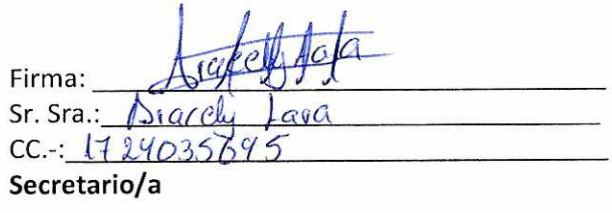 Firma: Aracely Lara
Sr. Sra.: Aracely Lara
CC.-: 1724035695
Secretario/a